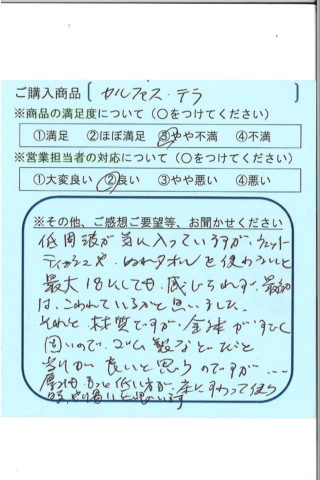 ご購入商品 〔 セルフェス・テラ
※商品の満足度について(○をつけてください)
①満足 ②ほぼ満足 ③やや不満 ④不満
※営業担当者の対応について(○をつけてください)
①大変良い ②良い ③やや悪い ④悪い
※その他、ご感想ご要望等、お聞かせください
低周波が気に入っていますが、ウェット
ティッシュや、ぬれタオルを使わないと
最大18にしても、感じられず、最初
は、こわれているかと思いました。
それと材質ですが、全体がすごく
固いので、ゴム製などだと
当りが良いと思うのですが‥‥
もっと低い方が、床にすわって使う
時、いいと思います